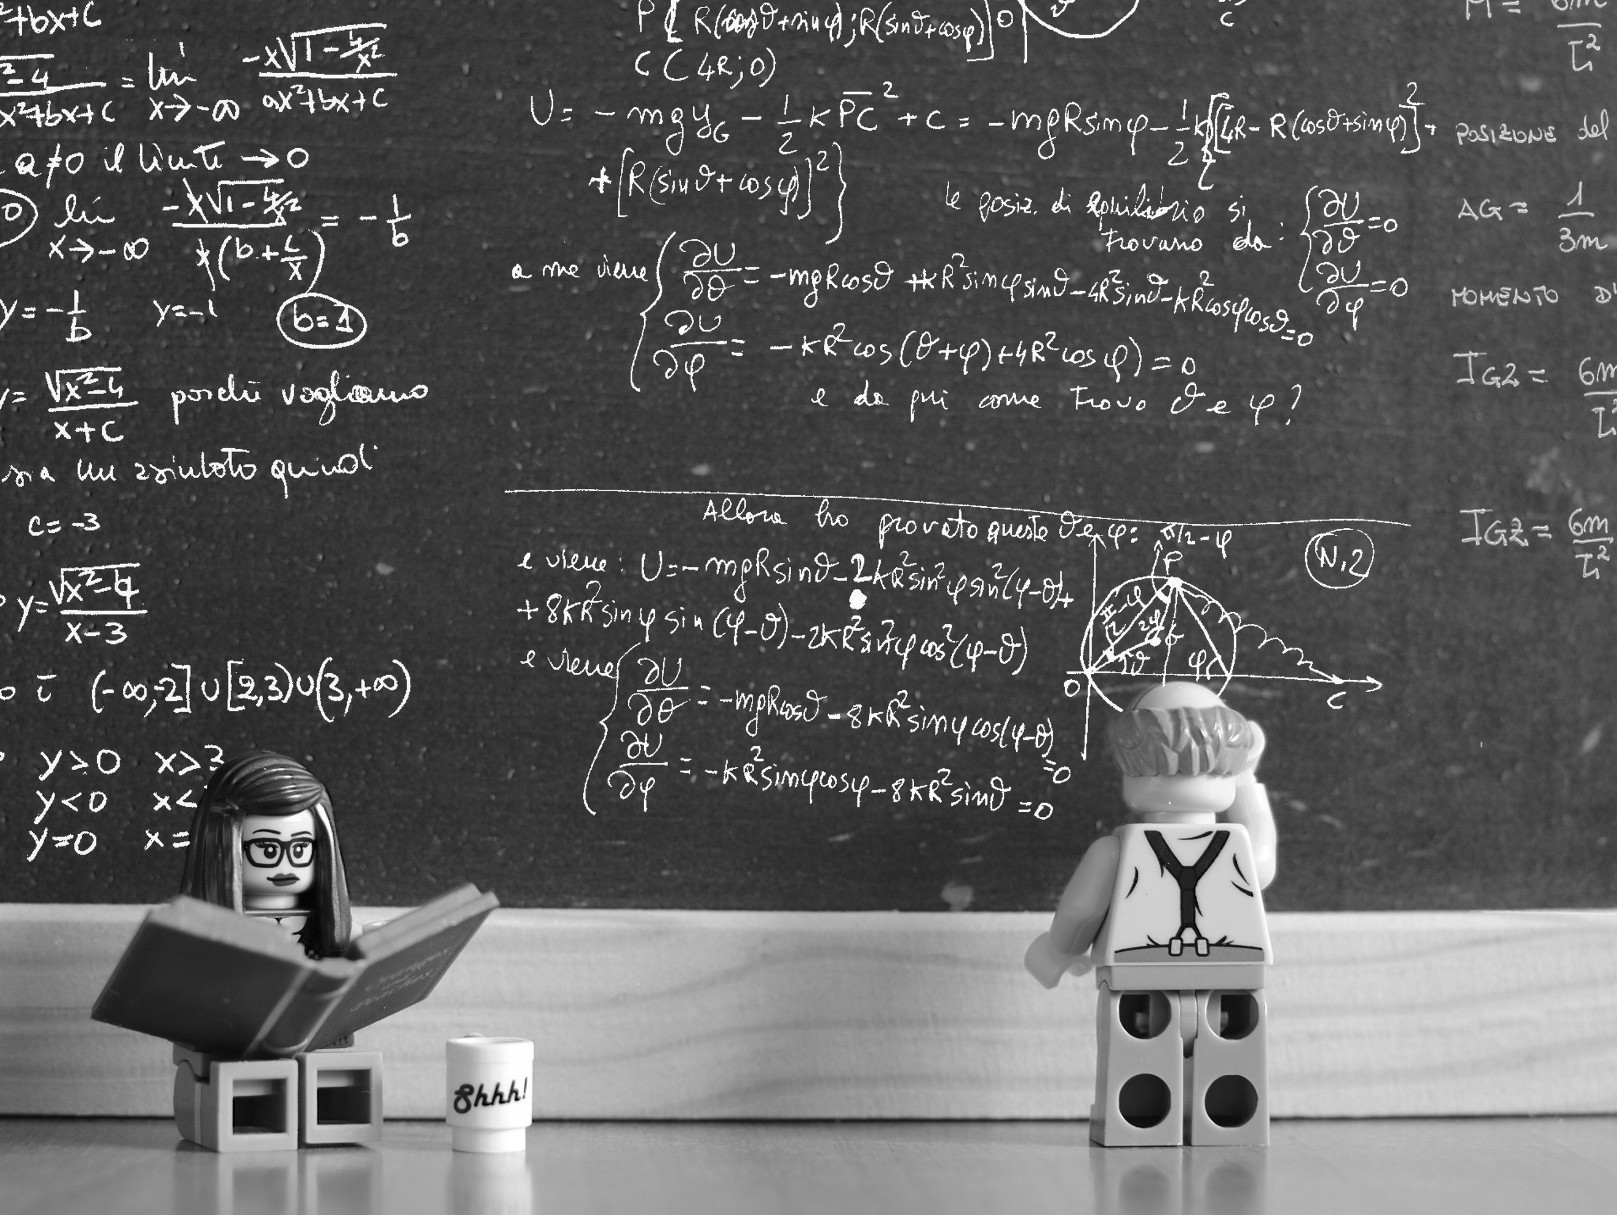 ²+bx+C
²-4 / x²+bx+C = lim x→-∞ -x√(1-4/x²) / ax²+bx+C
a≠0 il limite →0
lim x→-∞ -x√(1-4/x²) / x(b+c/x) = -1/b
y=-1/b y=-1 b=1
y= √(x²-4) / x+C perché vogliamo
sia un asintoto quindi
c=-3
y= √(x²-4) / x-3
(-∞,-2]∪[2,3)∪(3,+∞)
y>0 x>3
y<0 x<
y=0 x=
P[R(cosϑ+sinφ);R(sinϑ+cosφ)]
C(4R;0)
U= -mgy_G - 1/2 k PC² + c = -mgRsinφ - 1/2 k{[4R-R(cosϑ+sinφ)]²+
+[R(sinϑ+cosφ)]²}
le posiz. di equilibrio si
trovano da: { ∂U/∂ϑ=0
∂U/∂φ=0
a me viene { ∂U/∂ϑ = -mgRcosϑ+kR²sinφsinϑ-4R²sinϑ-kR²cosφcosϑ=0
∂U/∂φ = -kR²cos(ϑ+φ)+4R²cosφ)=0
e da qui come trovo ϑ e φ?
Allora ho provato queste ϑ e φ: π/2-φ
N.2
e viene: U=-mgRsinϑ-2kR²sin²φsin²(φ-ϑ)+
+8kR²sinφsin(φ-ϑ)-2kR²sin²φcos²(φ-ϑ)
e viene { ∂U/∂ϑ = -mgRcosϑ-8kR²sinφcos(φ-ϑ)=0
∂U/∂φ = -kR²sinφcosφ-8kR²sinϑ=0
P
2φ
G
ϑ
φ
O
C
M= 6m/L²
POSIZIONE del
AG= 1/3m
MOMENTO D'
IG2= 6m/L²
IG2= 6m/L²
Shhh!